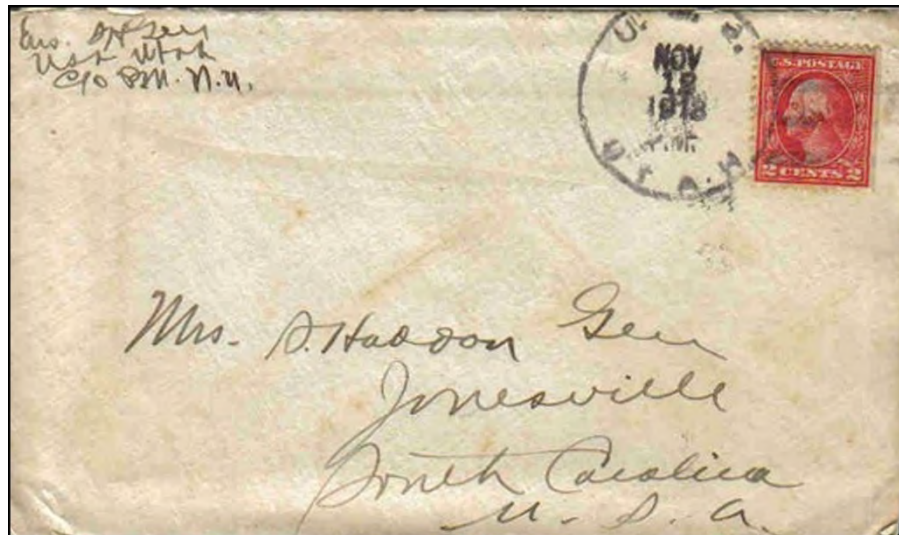 Ens. SH Geer
USS Utah
C/o P.M. N.Y.
U. S. S.
NOV
1918
P.M.
UTAH
U.S. POSTAGE
2 CENTS 2
Mrs. S. Haddon Geer
Jonesville
South Carolina
U. S. A.